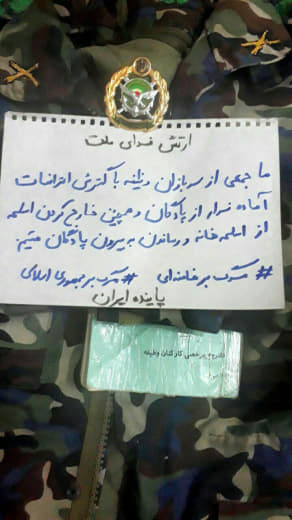 ارتش فدای ملت
ما جمعی از سربازان وظیفه با گسترش اعتراضات
آماده فرار از پادگان و همچنین خارج کردن اسلحه
از اسلحه خانه و رساندن به بیرون پادگان هستیم
# مرگ بر خامنه ای # مرگ بر جمهوری اسلامی
پاینده ایران
مرخصی کارکنان وظیفه